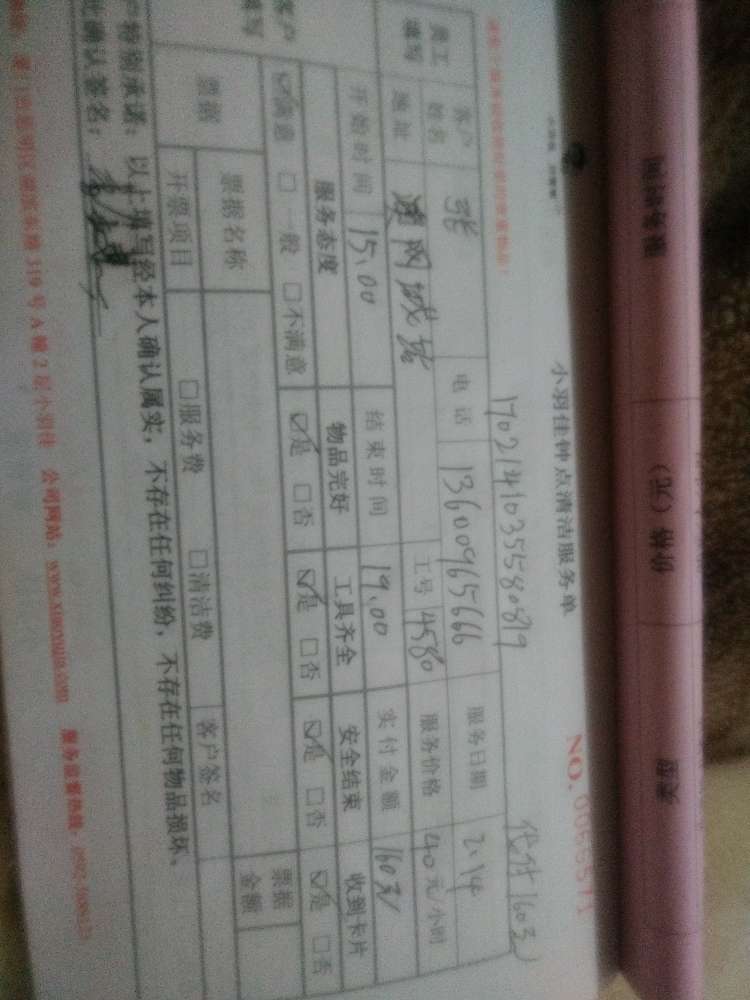 服务时间 价格（元） 类型
小羽佳钟点清洁服务单
NO. 0055571
17021410355580819 代付160元
员工填写 客户姓名 张 电话 13600965666 服务日期 2.14
地址 城 工号 4580 服务价格 40元/小时
开始时间 15.00 结束时间 19.00 实付金额 160元
客户填写 服务态度 物品完好 工具齐全 安全结束 收到卡片
☑满意 □一般 □不满意 ☑是 □否 ☑是 □否 ☑是 □否 ☑是 □否
票据 票据名称 票据金额
开票项目 □服务费 □清洁费 客户签名
户特别承诺：以上填写经本人确认属实，不存在任何纠纷，不存在任何物品损坏、
此确认签名：
319号A幢2层小羽佳 公司网站：www.xiaoyujia.com 服务监督热线：